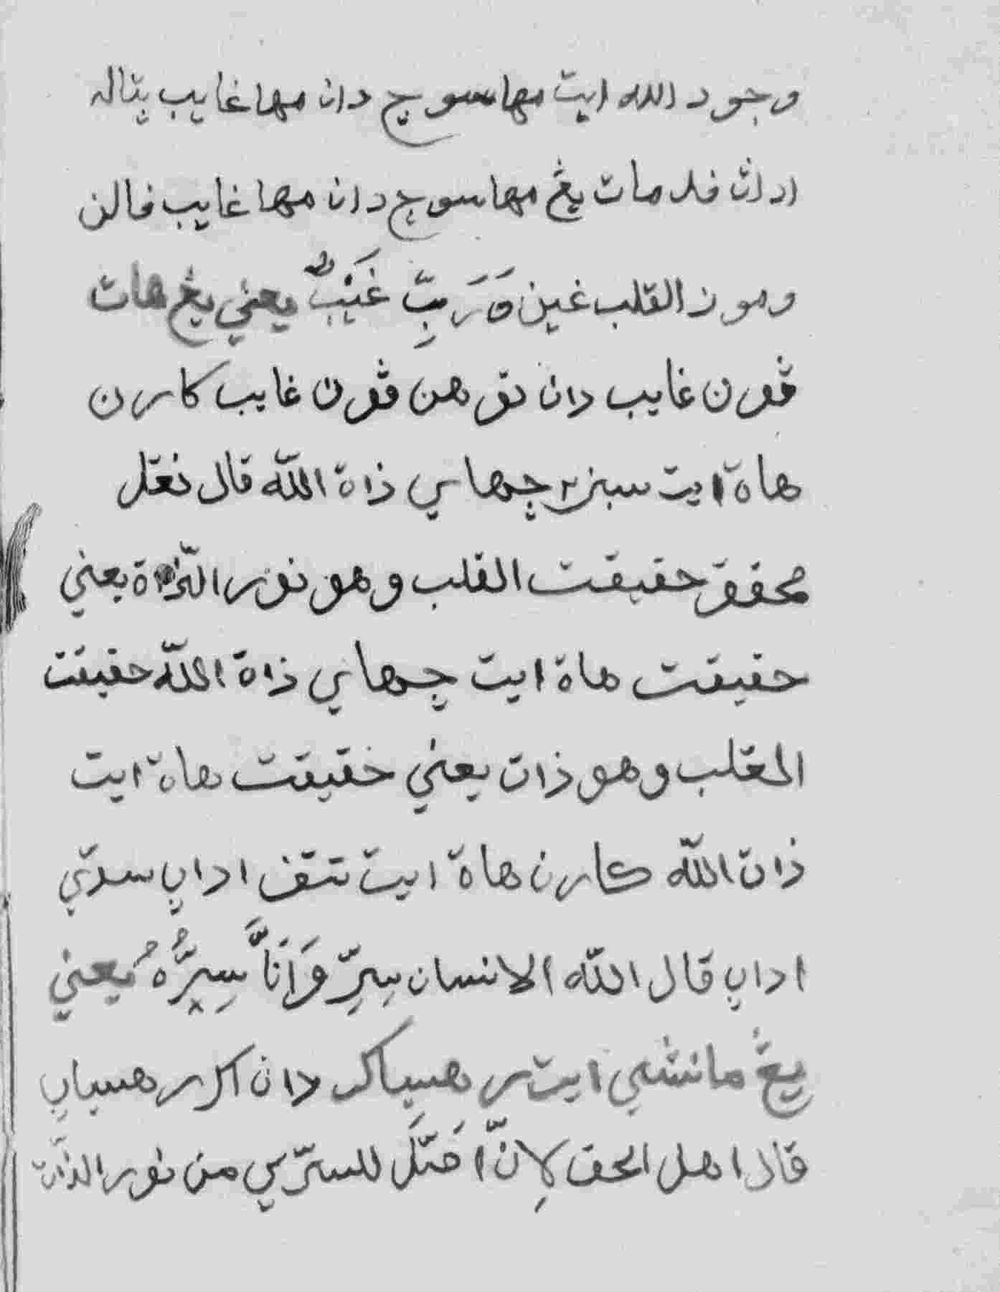 وجود الله ايت مها سوچ دان مها غايب بتاله
ادان فد مات يڠ مها سوچ دان مها غايب فالن
وهو ز القلب غين وَرَبِّ غَيْبٌ يعني يڠ هات
ڤون غايب دان توهن ڤون غايب كارن
هاة ايت سبنر٢ چهاي ذاة اللّه قال نقل
محقق حقيقت القلب وهو نور الذّاة يعني
حقيقت هاة ايت چهاي ذاة اللّه حقيقت
القلب وهو ذات يعني حقيقت هاة ايت
ذات اللّه كارن هاة ايت تتف اداي سدي
اداي قال اللّه الانسان سِرِّ وَاَنَاَّ سِرُّهُ يعني
يڠ مانسي ايت رهسياكو دان اكو رهسياي
قال اهل الحق لِانَّ للسرّي من نور الذات